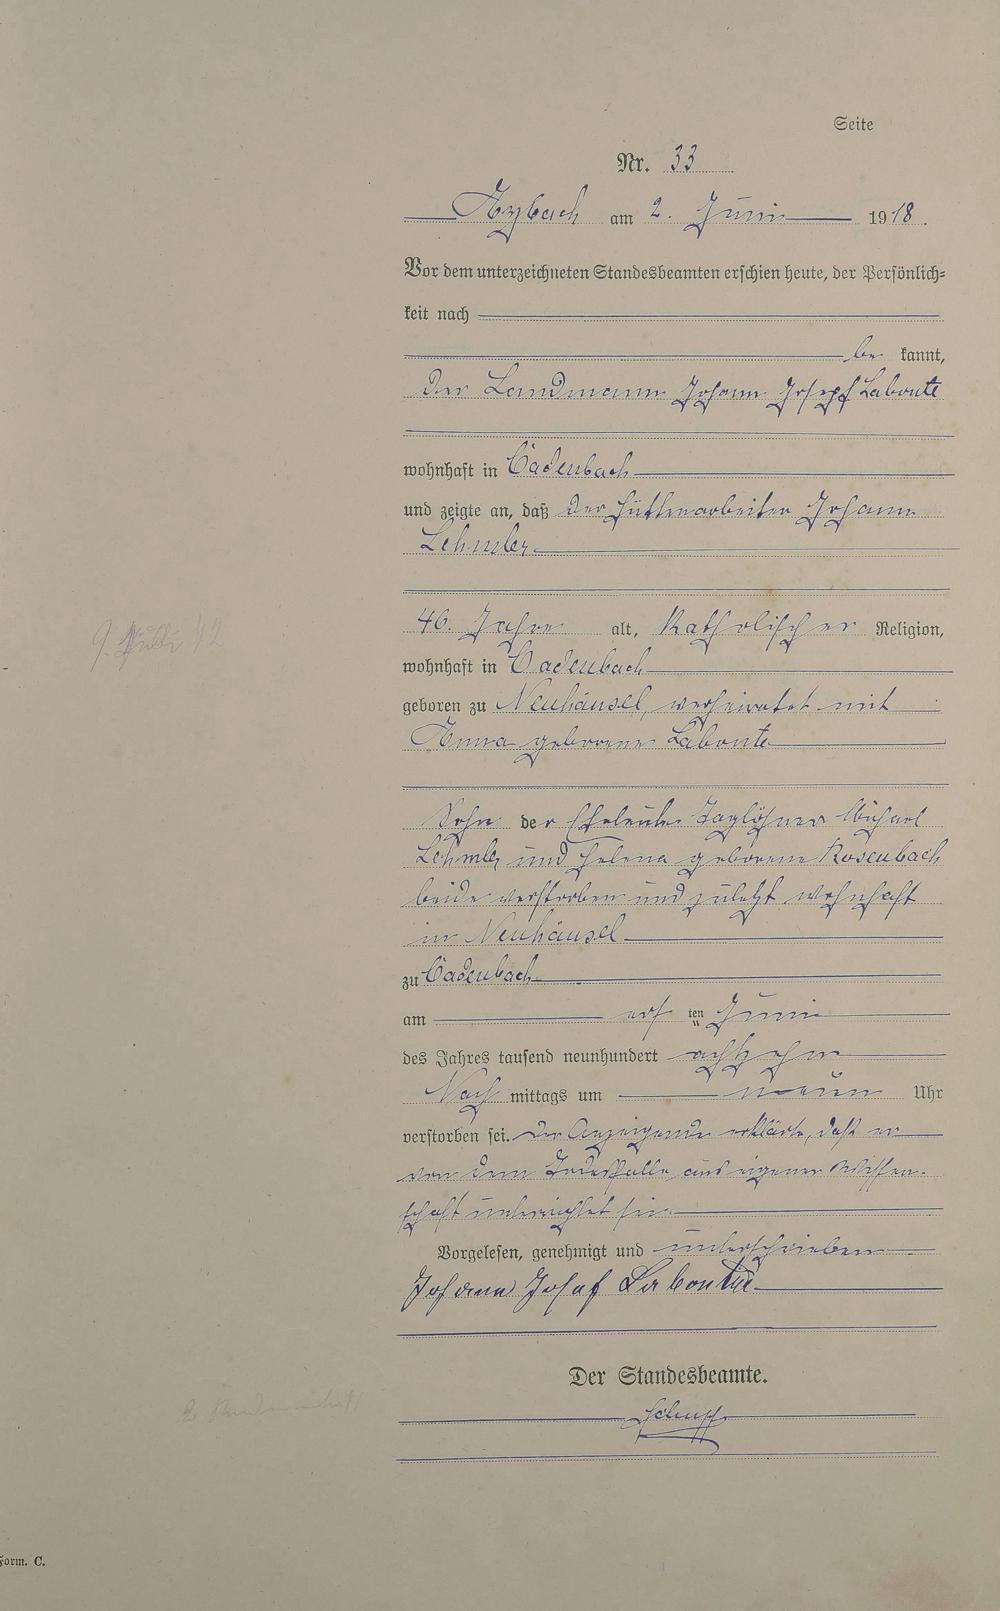 Seite
Nr. 33
Arzbach am 2. Juni 1918.
Vor dem unterzeichneten Standesbeamten erschien heute, der Persönlich-
keit nach
be kannt,
der Landmann Johann Josepf Labonte
wohnhaft in Cadenbach
und zeigte an, daß der Hüttenarbeiter Johann
Lehmler
46. Jahre alt, Katholischer Religion,
wohnhaft in Cadenbach
geboren zu Neuhäusel, verheiratet mit
Anna geborene Labonte
Sohn der Eheleute Taglöhner Michael
Lehmler und Helena geborene Rosenbach
beide verstorben und zuletzt wohnhaft
in Neuhäusel
zu Cadenbach
am ersten Juni
des Jahres tausend neunhundert achtzehn
Nach mittags um neun Uhr
verstorben sei. Der Anzeigende erklärte, daß er
von dem Todesfalle aus eigener Wissen-
schaft unterrichtet sei.
Vorgelesen, genehmigt und unterschrieben
Johann Josef Labonte
Der Standesbeamte.
Form. C.